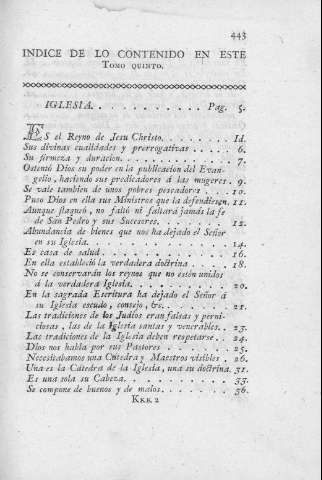 443
INDICE DE LO CONTENIDO EN ESTE
TOMO QUINTO.
IGLESIA. . . . . . . . . . . Pag. 5.
ES el Reyno de Jesu Christo. . . . . . . . Id.
Sus divinas cualidades y prerrogativas . . . . . 6.
Su firmeza y duracion. . . . . . . . . . . 7.
Ostentó Dios su poder en la publicacion del Evan-
gelio, haciendo sus predicadores á las mugeres. 9.
Se vale tambien de unos pobres pescadores . . . 10.
Puso Dios en ella sus Ministros que la defendiesen. 11.
Aunque flaqueó, no faltó ni faltará jamás la fe
de San Pedro y sus Sucesores. . . . . . . . 12.
Abundancia de bienes que nos ha dejado el Señor
en su Iglesia. . . . . . . . . . . . . . 14.
Es casa de salud. . . . . . . . . . . . . 16.
En ella estableció la verdadera doctrina . . . . 18.
No se conservarán los reynos que no estén unidos
á la verdadera Iglesia. . . . . . . . . . 20.
En la sagrada Escritura ha dejado el Señor á
su Iglesia escudo, consejo, &c. . . . . . . 21.
Las tradiciones de los Judios eran falsas y perni-
ciosas, las de la Iglesia santas y venerables. . 23.
Las tradiciones de la Iglesia deben respetarse. . 24.
Dios nos habla por sus Pastores . . . . . . 25.
Necesitabamos una Catedra y Maestros visibles . 26.
Una es la Cátedra de la Iglesia, una su doctrina. 31.
Es una sola su Cabeza. . . . . . . . . . . 33.
Se compone de buenos y de malos. . . . . . . 36.
KKK 2